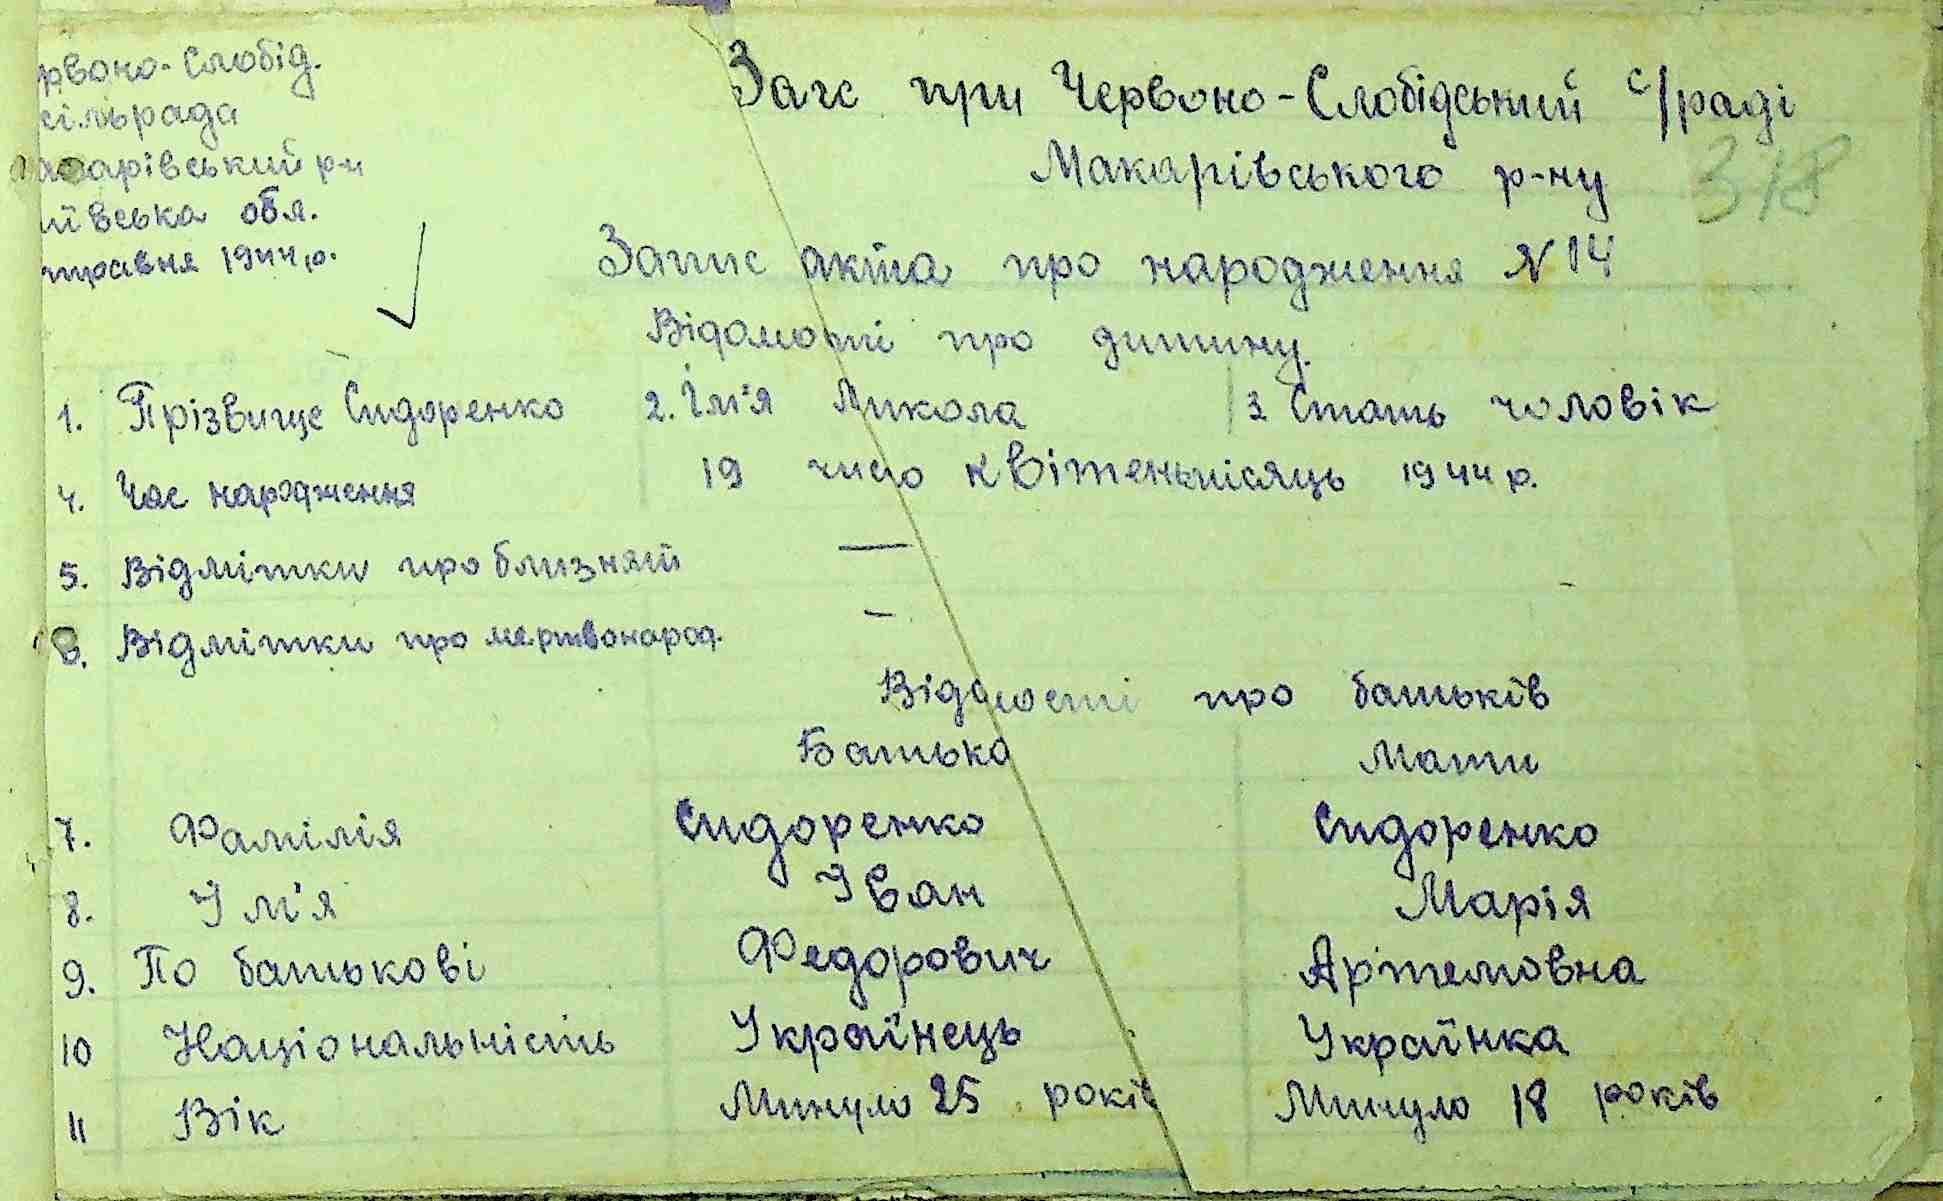 рвоно-Слобід.
сільрада
макарівський р-н
иївська обл.
травня 1944 р.
Загс при Червоно-Слобідський с/раді
Макарівського р-ну
318
Запис акта про народження №14
Відомості про дитину.
1. Прізвище Сидоренко 2. Ім'я Микола 3. Стать чоловік
4. Час народження 19 число квітень місяць 1944 р.
5. Відмітки про близняті —
6. Відмітки про мертвонарод. –
Відомості про батьків
Батько Мати
7. Фамілія Сидоренко Сидоренко
8. Ім'я Іван Марія
9. По батькові Федорович Артемовна
10 Національність Українець Українка
11 Вік Минуло 25 років Минуло 18 років